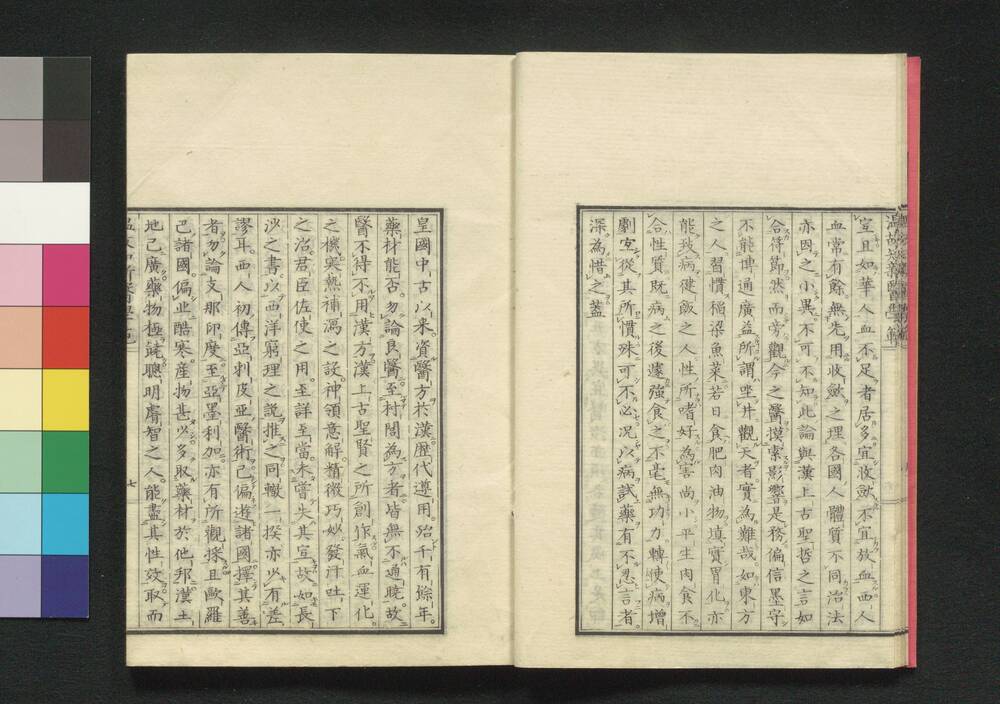 宜且如華人血不足者居多宜收斂不宜放血西人
血常有餘無先用收斂之理各國人體質不同治法
亦因之小異不可不知此論與漢上古聖哲之言如
合符節然而旁觀今之醫摸索影響是務偏信墨守
不能博通廣益所謂坐井觀天者實為難哉如東方
之人習慣稻粱魚菜若日食肥肉油物填實胃化亦
能致病健飯之人性所嗜好為害尚小平生肉食不
合性質既病之後遽強食之不毫無功力轉使病增
劇宜從其所慣殊可不必况以病試藥有不忍言者
深為惜之蓋
皇國中古以來資醫方於漢歷代遵用殆千有餘年
藥材能否勿論良醫至村閭為方者皆無不通曉故
醫不得不用漢方漢上古聖賢之所創作氣血運化
之機寒熱補瀉之設神領意解精微巧妙發汗吐下
之治君臣佐使之用至詳至當未嘗失其宜故如長
沙之書以西洋窮理之説推之同轍一揆亦少有差
謬耳西人初傳亞剌皮亞醫術已偏遊諸國擇其善
者勿論支那印度至亞墨利加亦有所觀採且歐羅
己諸國偏北酷寒産物甚少多取藥材於他邦漢土
地己廣藥物極饒聰明睿智之人能盡其性效取而
七